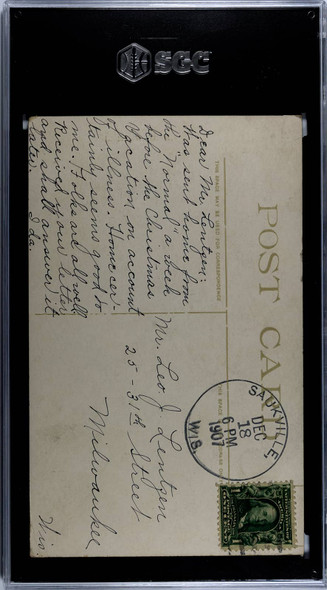 SGC
POST CARD
THIS SPACE MAY BE USED FOR CORRESPONDENCE
Dear Mr. Lentzen;
Was sent home from
the "Normal" a week
before the Christmas
vacation on account
of illness. Home cer-
tainly seems good to
me. Folks are all well
Received your letter
and shall answer it
later.
Ida.
SAUKVILLE
DEC
18
6 PM
1907
WIS.
Mr. Leo J. Lentzen
25 - 31th Street
Milwaukee
Wis